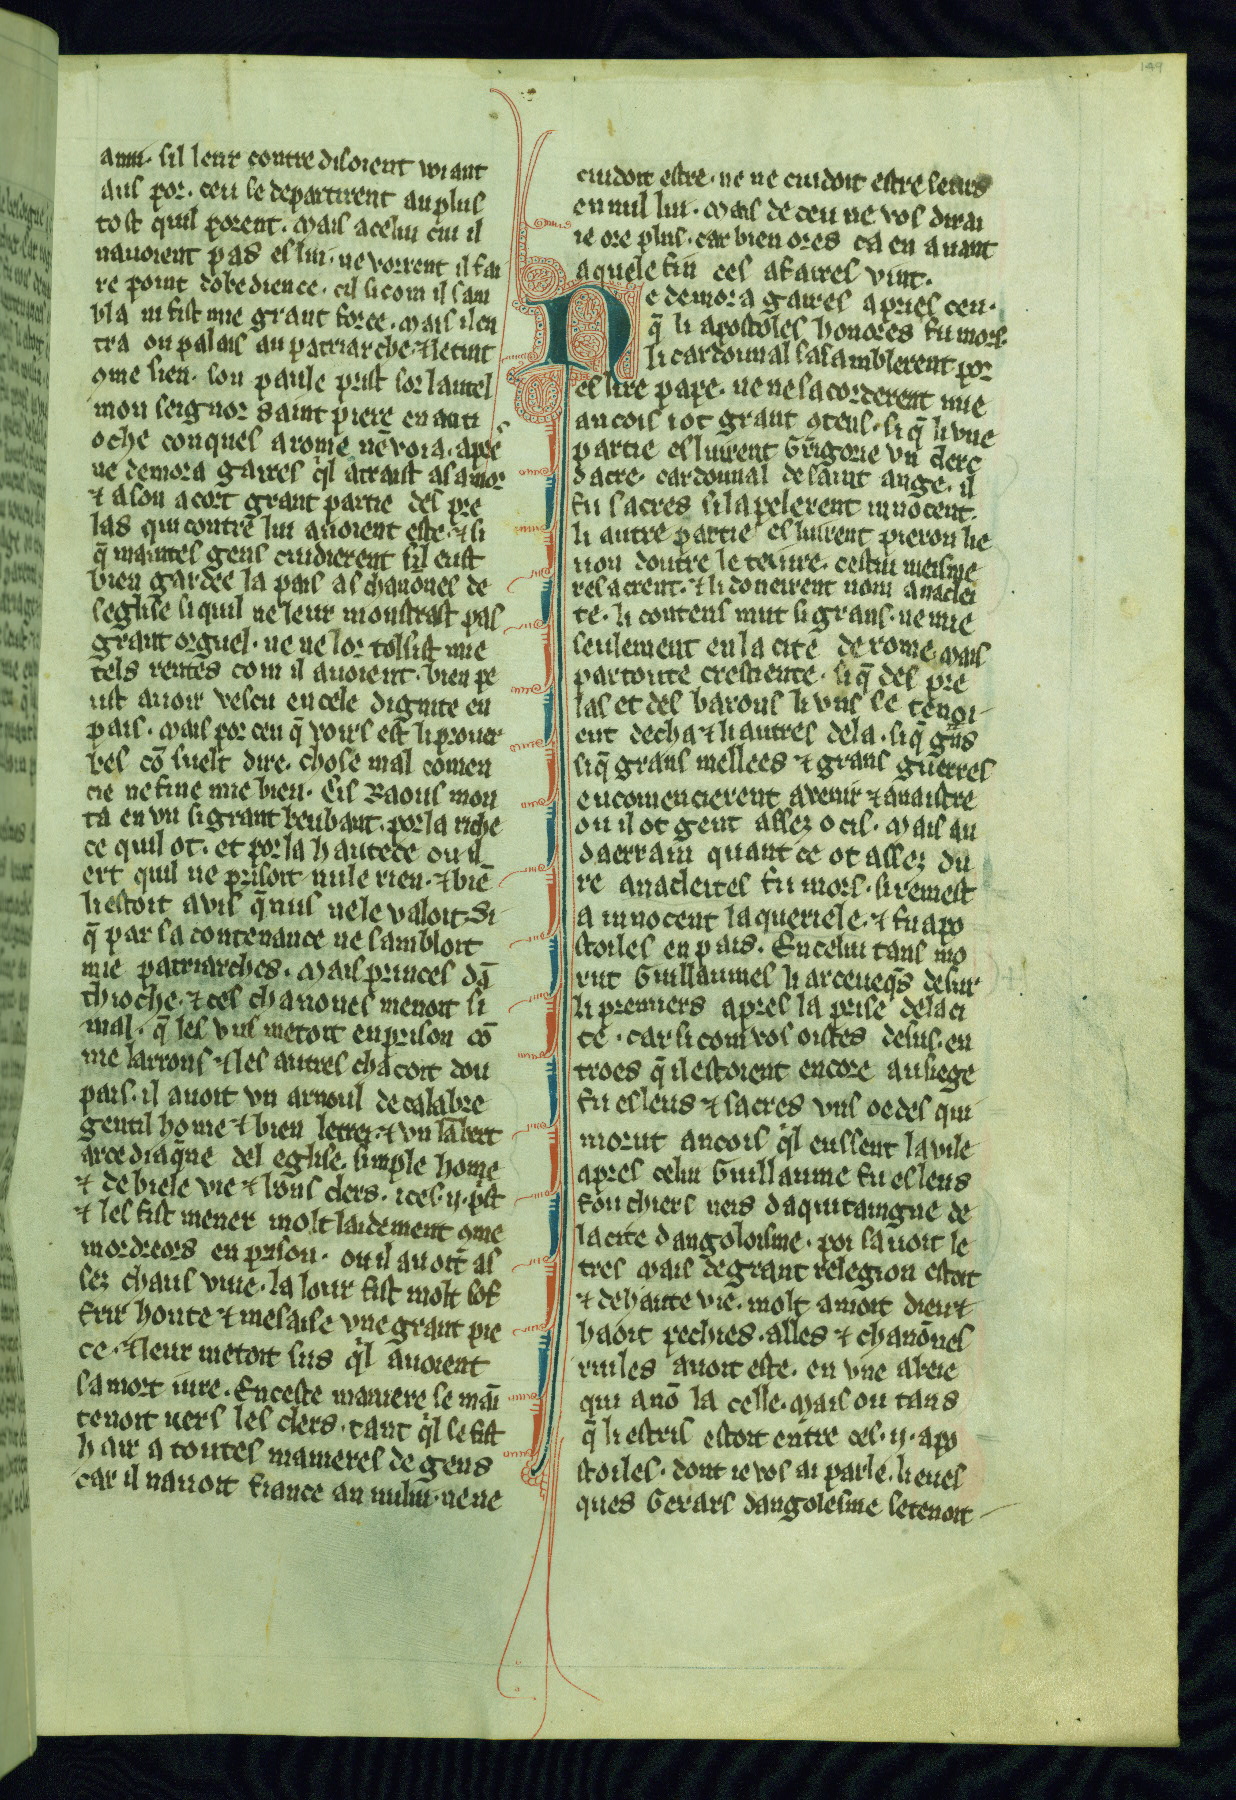 149
anui. sil leur contre disoient uiant
ans por. ceu se departirent au plus
tost quil porent. Mais a celui cui il
nauoient pas eslui. ne uorrent il fai
re point dobedience. cil si com il sam
bla ni fist mie grant force. Mais il en
tra ou palais au patriarche. ⁊ le tint
9me sien. son paule prist sor lautel
mon seignor saint piere en anti
oche conques a rome nē voia. apres
ne demora gaires ql atraist a samor
⁊ a son acort grant partie des pre
las qui contre lui auoient este. ⁊ si
q̄ maintes gens cuidierent sil eust
bien gardee la pais as chanones de
leglise si quil ne leur monstrast pas
grant orguel. ne ne lor tolsist mie
tels rentes com il auoient. bien pe
ust auoir vescu en cele dignite en
pais. Mais por ceu q̄ voirs est li prouer
bes cō suelt dire. chose mal comen
cie ne fine mie bien. Cis Raous mon
ta en vn si grant beubant. por la riche
ce quil ot. et por la hautece ou il
ert quil ne prisoit nule rien. ⁊ biē
li estoit avis q̄ nus ne le valoit. Si
q̄ par sa contenance ne sambloit
mie patriarches. Mais princes dā
thioche. ⁊ ces chanones menoit si
mal. q̄ les vns metoit en prison cō
me larrons ⁊ les autres chacoit dou
pais. il auoit vn arnoul de calabre
gentil home ⁊ bien letrez. ⁊ vn lābert
arcediaq̄ne del eglise. simple home
⁊ de biele vie ⁊ bons clers. ices .ij. p̄st
⁊ les fist mener molt laidement 9me
mordreors en prison. ou il auoit as
sez chaus viue. la lour fist molt sof
frir honte ⁊ mesaise vne grant pie
ce. ⁊ leur metoit sus ql auoient
sa mort iure. En ceste maniere se māi
tenoit uers les clers. tant ql se fist
hair a toutes manieres de gens
car il nauoit fiance an nului. ne ne
cuidoit estre. ne ne cuidoit estre seurs
en nul lui. Mais de ceu ne vos dirai
ie ore plus. car bien ores ca en auant
a quele fin ces afaires vint.
Ne demora gaires apries ceu.
q̄ li apostoles honores fu mors.
li cardounal sasamblerent por
eslire pape. ne ne sacorderent mie
ancois i ot grant 9tens. si q̄ li vne
partie esluirent Grigorie vn clerc
dacre. cardounal de saint ange. il
fu sacres si lapelerent innocent.
li autre partie esluirent pieron lie
uon doutre le teuire. cestui meisme
resacrent. ⁊ li doneirent nom anaclei
te. li contens mut si grans. ne mie
seulement en la cite de rome. Mais
par toute crestiente. si q̄ des pre
las et des barons li vns se tenoi
ent decha ⁊ li autres dela. si q̄ grās
si q̄ grans mellees ⁊ grans guerres
encomencierent a venir ⁊ a naistre
ou il ot gent assez ocis. Mais au
daerrain quant ce ot assez du
re anacleites fu mors. si remest
a innocent la queriele. ⁊ fu apo
stoiles en pais. En celui tans mo
rut Guillaumes li arceueq̄s de sur
li premiers apres la prise de la ci
te. car si com vos oistes desus. en
troes q̄ il estoient encore au siege
fu esleus ⁊ sacres vns oedes qui
morut ancois ql eussent la vile
apres celui Guillaume fu esleus
fouchiers neis daquitaingne de
la cite dangoloisme. poi sauoit le
tres Mais de grant relegion estoit
⁊ de haute vie. molt amoit dieu ⁊
haoit pechies. asses ⁊ chanōnes
riules auoit este. en vne abeie
qui a nō la celle. Mais ou tans
q̄ li estris estoit entre ces .ij. apo
stoiles. dont ie vos ai parle. li eues
ques Gerars dangolesme se tenoit